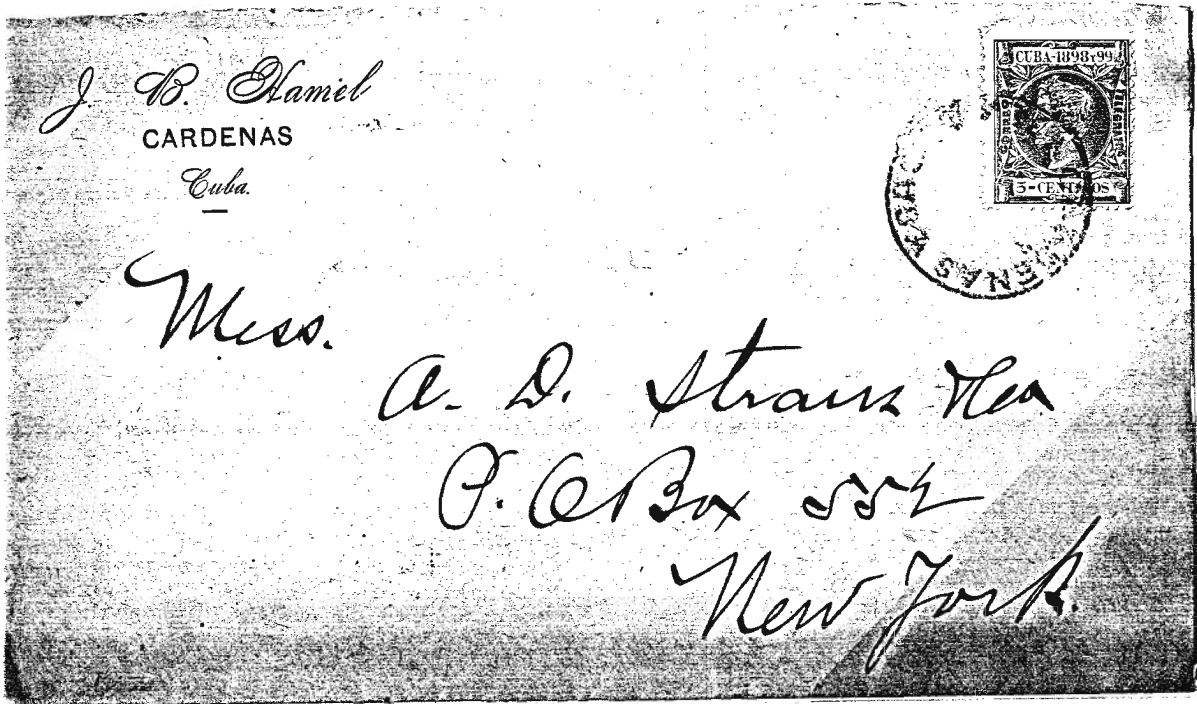 J. B. Hamel
CARDENAS
Cuba.
CUBA-1898 Y 99
CORREOS
3-CENTAVOS
CARDENAS
CUBA
Mess.
A. D. Straus
P. O Box 552
New York.